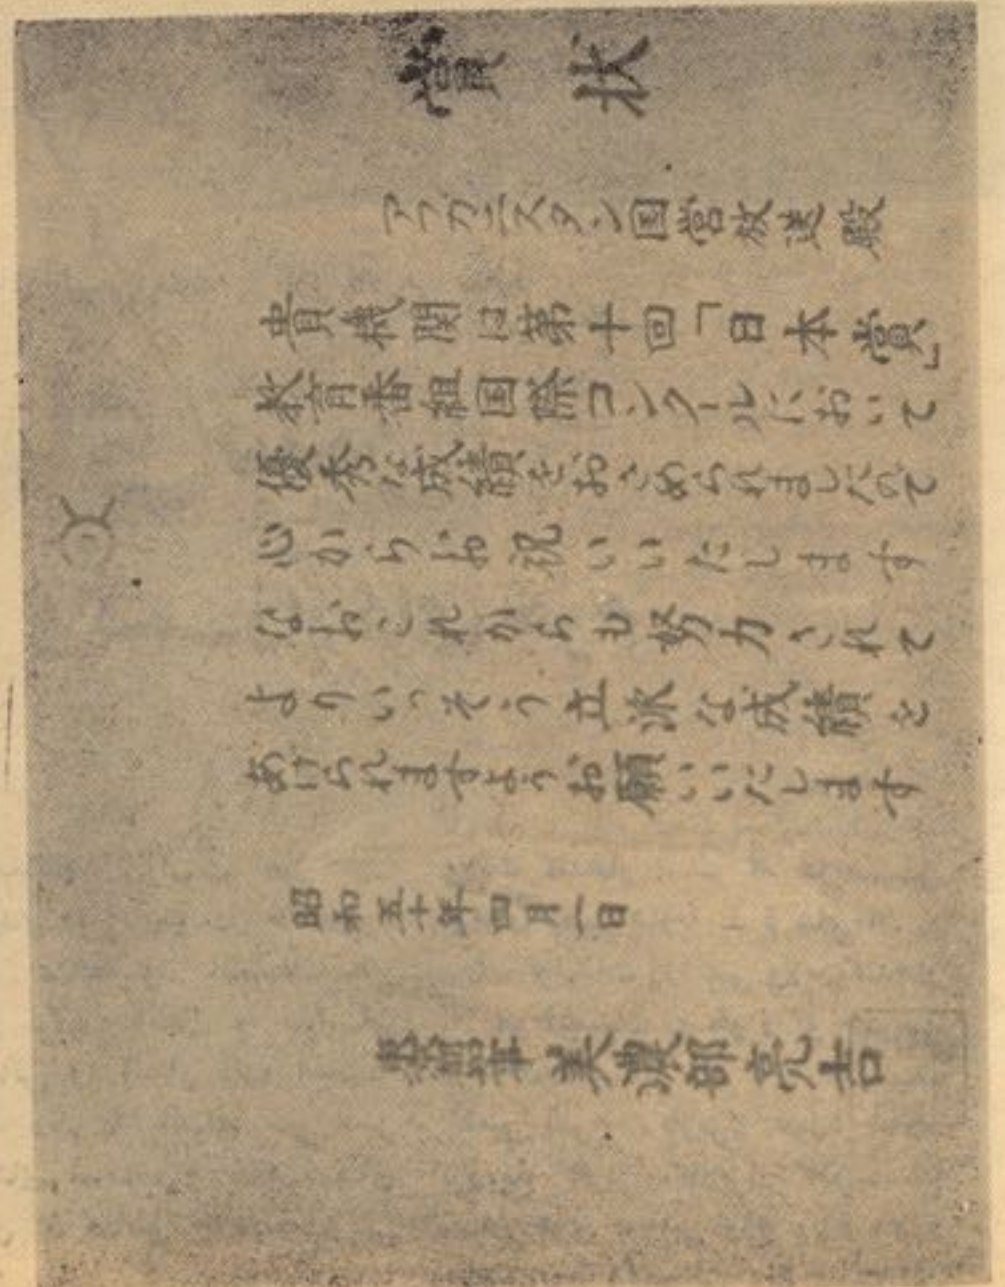 賞状
アフガニスタン国営放送殿
貴機関は第十回「日本賞」
教育番組国際コンクールにおいて
優秀な成績をおさめられましたので
心からお祝いいたします
なおこれからも努力されて
よりいっそう立派な成績を
あげられますようお願いいたします
昭和五十年四月一日
東京都知事 美濃部亮吉